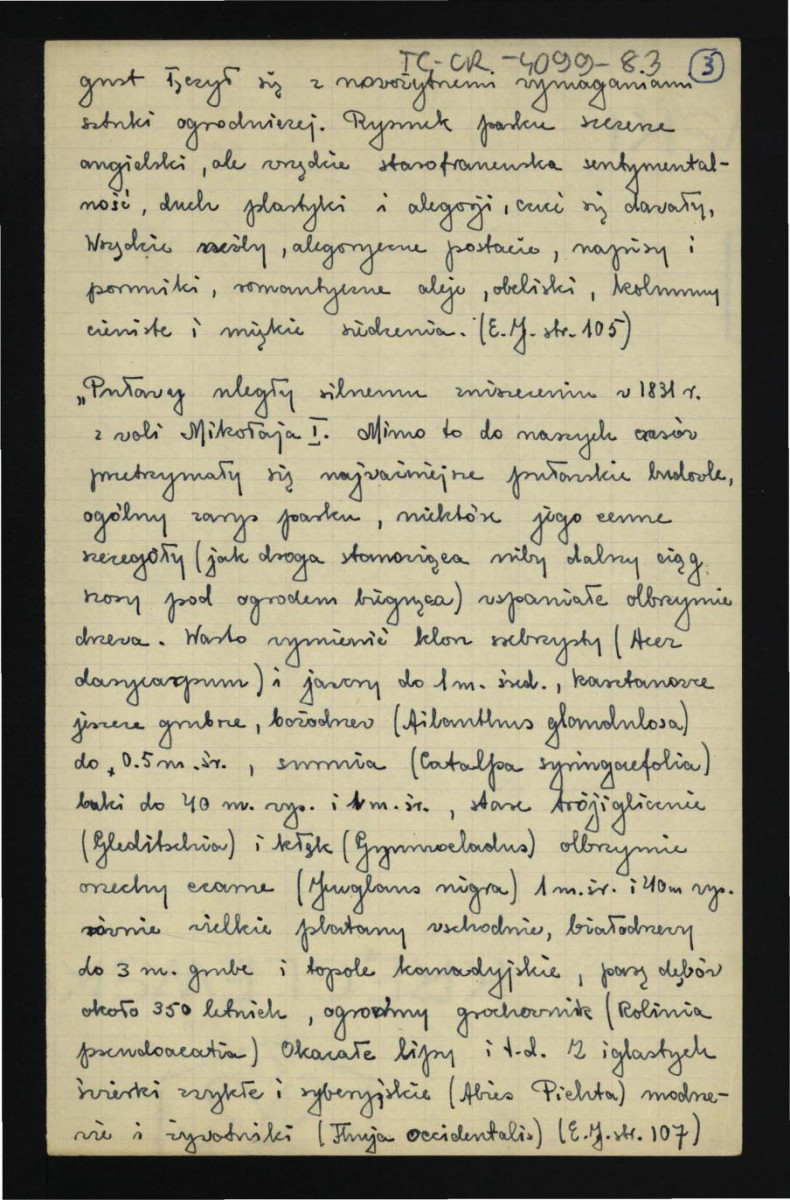 TC-CR-4099-83 3
gust łączył się z nowożytnemi wymaganiami
sztuki ogrodniczej. Rysunek parku szczerze
angielski, ale wszędzie starofrancuska sentymental-
ność, duch plastyki i alegorji, czuć się dawały,
Wszędzie rzeźby, alegoryczne postacie, napisy i
pomniki, romantyczne aleje, obeliski, kolumny
cieniste i miękkie siedzenia. (E.J. str. 105)
„Puławy uległy silnemu zniszczeniu w 1831 r.
z woli Mikołaja I. Mimo to do naszych czasów
przetrzymały się najważniejsze puławskie budowle,
ogólny zarys parku, niektóre jego cenne
szczegóły (jak droga stanowiąca niby dalszy ciąg
szosy pod ogrodem biegnąca) wspaniałe olbrzymie
drzewa. Warto wymienić klon srebrzysty (Acer
dasycarpum) i jawory do 1 m. śred., kasztanowce
jeszcze grubsze, bożodrzew (Ailanthus glandulosa)
do 0.5 m. śr., surmia (Catalpa syringaefolia)
buki do 40 m. wys. i 1 m. śr., stare trójiglicznie
(Gleditschia) i kłęk (Gymnocladus) olbrzymie
orzechy czarne (Juglans nigra) 1 m. śr. i 40 m wys.
równie wielkie platany wschodnie, białodrzewy
do 3 m. grube i topole kanadyjskie, parę dębów
około 350 letnich, ogromny grochownik (Robinia
pseudoacatia) Okazałe lipy i t.d. Z iglastych
świerki zwykłe i syberyjskie (Abies Pichta) modrze-
wie i żywotniki (Thuja occidentalis) (E.J. str. 107)